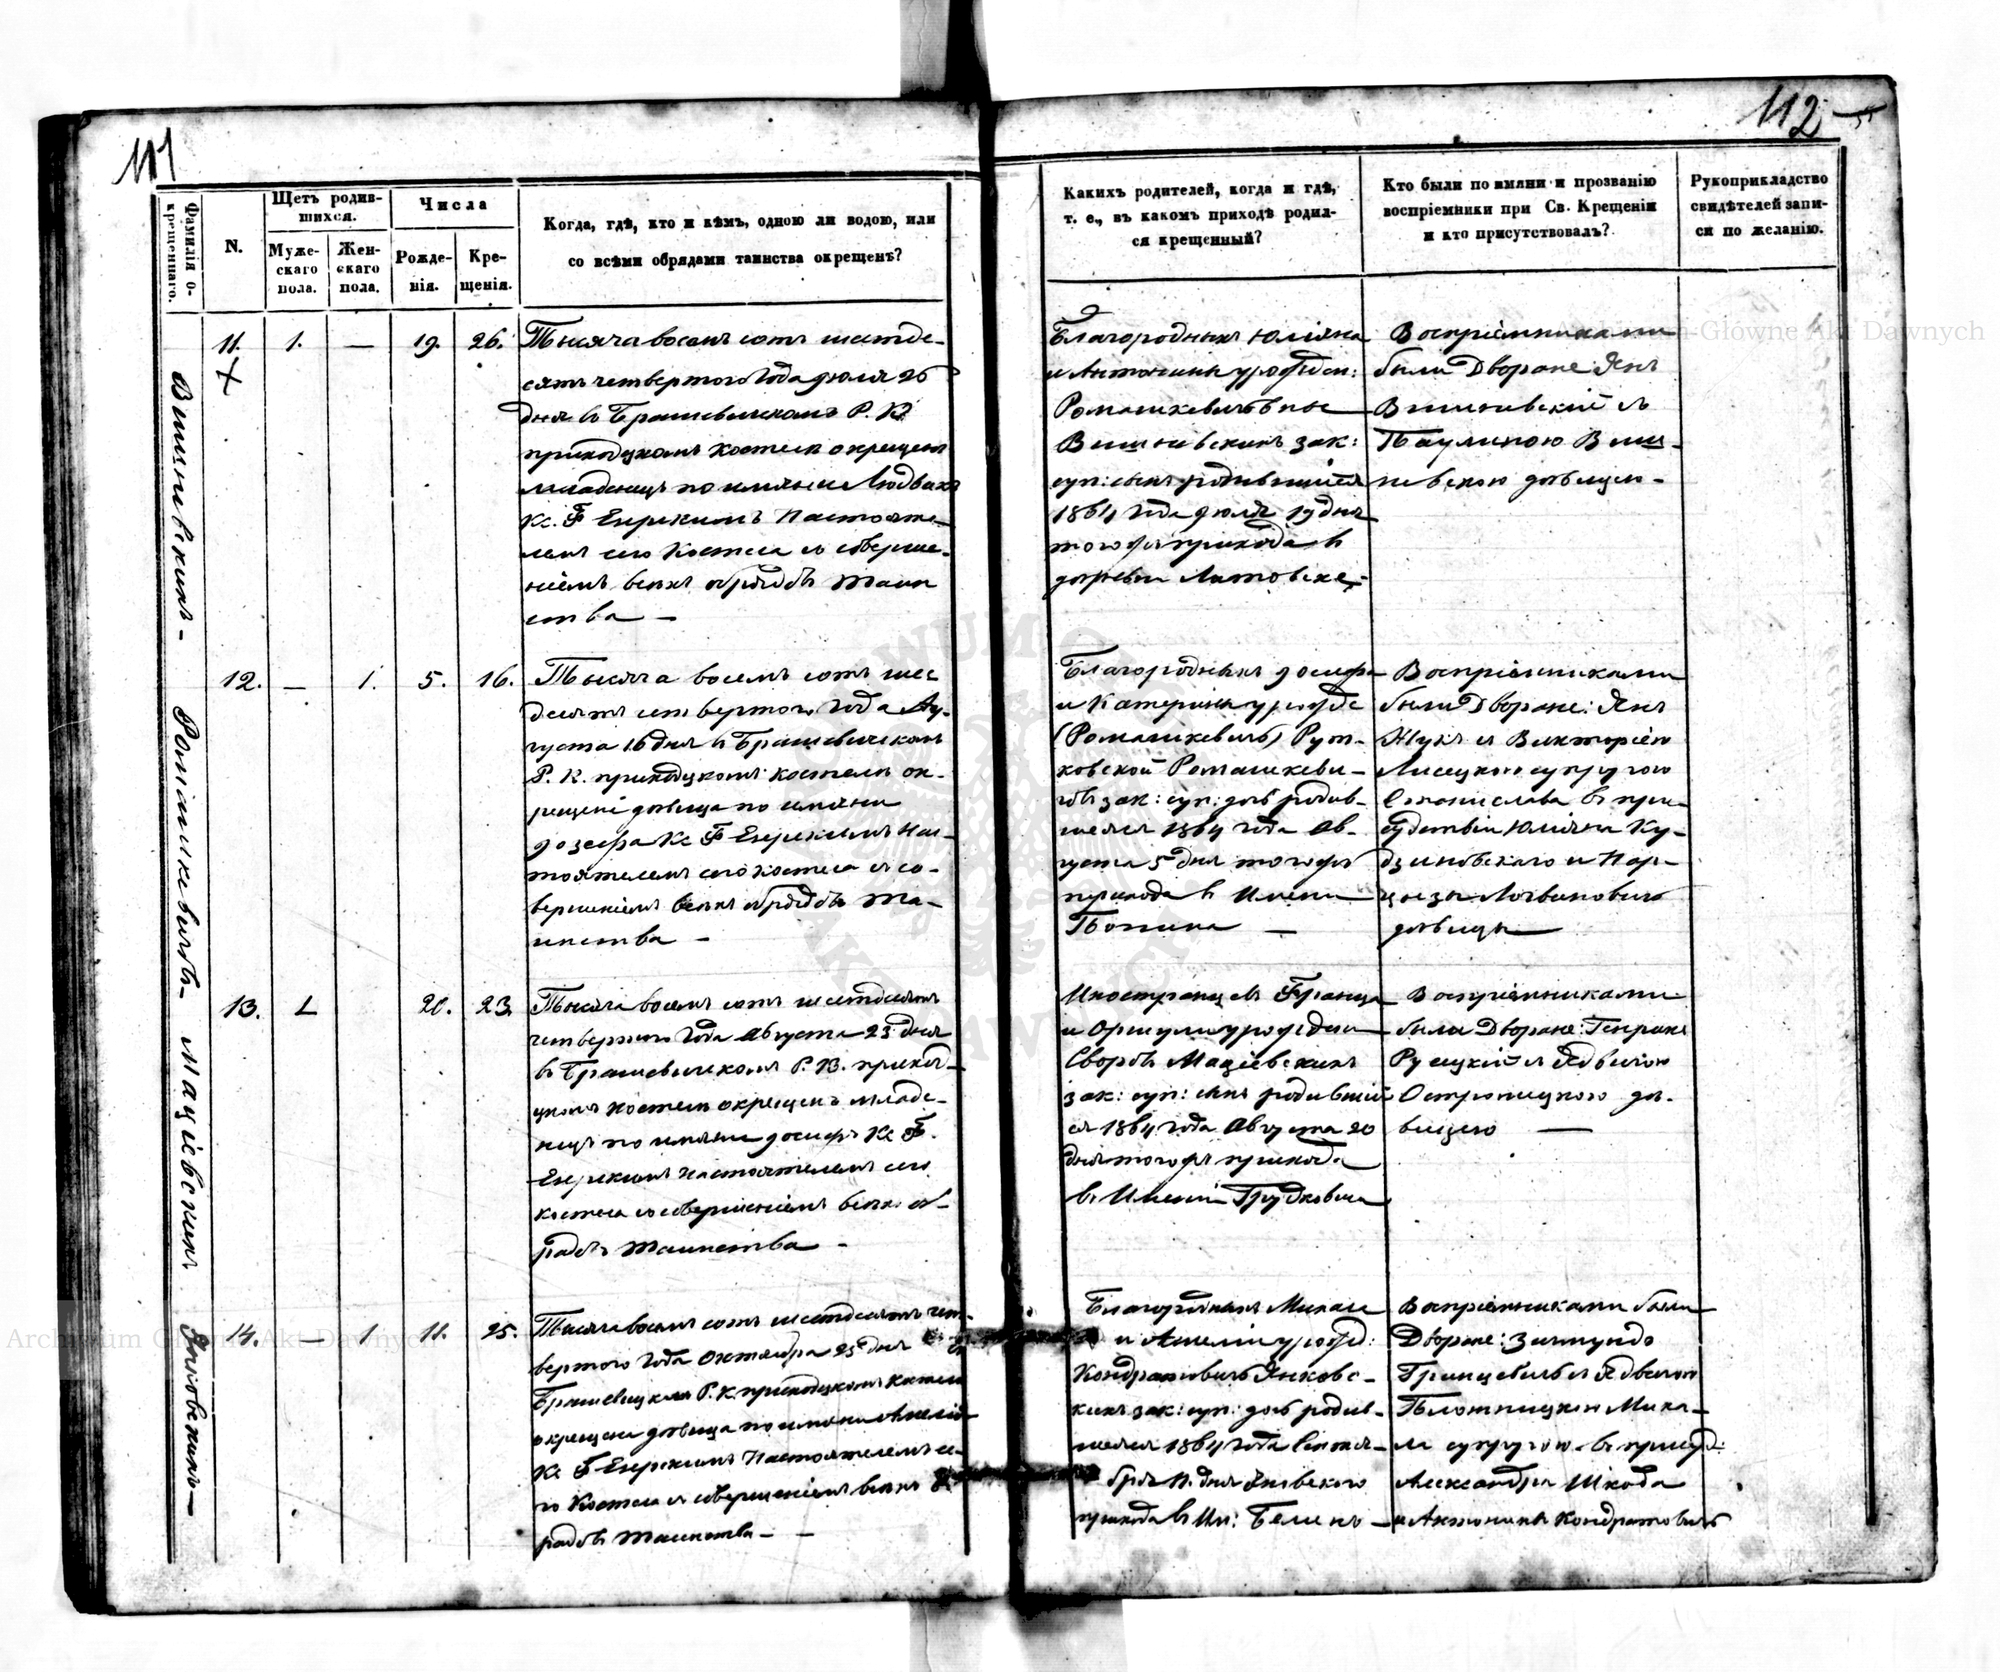 111
112
Фамилія о-
крещеннаго.
N.
Щетъ родив-
шихся.
Муже-
скаго
пола.
Жен-
скаго
пола.
Числа
Рожде-
нія.
Кре-
щенія.
Когда, гдѣ, кто и кѣмъ, одною ли водою, или
со всѣми обрядами таинства окрещенъ?
Каких​ъ родителей, когда и гдѣ,
т. е., въ какомъ приходѣ родил-
ся крещенный?
Кто были по имяни и прозванію
воспріемники при Св. Крещеніи
и кто присутствовалъ?
Рукоприкладство
свидѣтелей запи-
си по желанію.
Вишневскихъ
11.
1.
—
19.
26.
Тысяча восемъ сотъ шестде-
сятъ четвертого Года Юля 26
дня въ Брашевическомъ Р. К.
приходскомъ костелѣ окрещенъ
младенецъ по имяни Людвикъ
Кс. Ф Енрекимъ Настояте-
лемъ сего Костела съ соверше-
ніемъ всѣхъ обрядовъ Таин
ства —
Благородныхъ Юліяна
и Антонины урожден:
Ромашкевичовны
Вишневскихъ зак:
суп: сынъ родившійся
1864 Года Юля 19 дня
того жъ прихода въ
деревни Литовске
Воспріемниками
были Дворяне Янъ
Вишневскій съ
Паулиною Виш-
невскою дѣвицею.
Ромашкевичовъ
12.
—
1.
5.
16.
Тысяча восемъ сотъ шес
десятъ четвертого Года Ав-
густа 16 дня въ Брашевическомъ
Р. К. приходскомъ костелѣ ок-
рещенѣ дѣвица по имяни
Юзефа Кс Ф Енрекимъ Нас-
тоятелемъ сего костела съ со-
вершеніемъ всѣхъ обрядовъ Та-
инства —
Благородныхъ Юсифа
и Катерины урожде
(Ромашкевичъ) Рут-
ковской Ромашкеви-
човъ зак: суп: дочь родив-
шеяся 1864 года Ав-
густа 5 дня того жъ
прихода въ Имени
Воспріемниками
были Дворяне: Янъ
Жукъ съ Викторіею
Лисецкою супругою
Станислава въ при-
судствіи Юліяна Ку-
дзиновскаго и Нар-
цызы Логвиновичъ
дѣвицы
Маціевскихъ
13.
1.
20.
23.
Тысяча восемъ сотъ шестдесятъ
четвертого Года Августа 23 дня
въ Брашевическомъ Р. К. приход-
цкомъ костелѣ окрещенъ младе-
нецъ по имяни Юсифъ Кс Ф.
Енрекимъ Настоятелемъ сего
костела съ совершеніемъ всѣхъ об-
рядовъ Таинства —
Иностранцевъ Франца
и Оршули урожден
Сворбъ Маціевскихъ
зак: суп: сынъ родившій
ся 1864 года Августа 20
дня того жъ прихода
въ Имени Грудковича
Воспріемниками
были Дворяне: Генрикъ
Русецкій съ Ядвигою
Островицкою дѣ-
вицею —
Янковскихъ
14.
—
1
11.
25.
Тысяча восемъ сотъ шестдесятъ чет-
вертого Года Октября 25 дня въ
Брашевицкомъ Р. К. приходскомъ костелѣ
окрещена дѣвица по имяни Анелія
Кс Ф Енрекимъ Настоятелемъ се-
го Костела съ совершеніемъ всѣхъ об
рядовъ Таинства —
Благородныхъ Михаи
и Анеліи урожд:
Кондратовичъ Янковс-
кихъ зак: суп: дочь родив-
шеяся 1864 года Сентя-
бря 11 дня
прихода въ Им:
Воспріемниками были
Дворяне: Зигмундъ
съ Ядвигою
Блотницкою Миха-
ла супругою въ присуд:
Александра Шкода
и Антонины Кондратовичъ
Archiwum Główne Akt Dawnych
Archiwum Główne Akt Dawnych